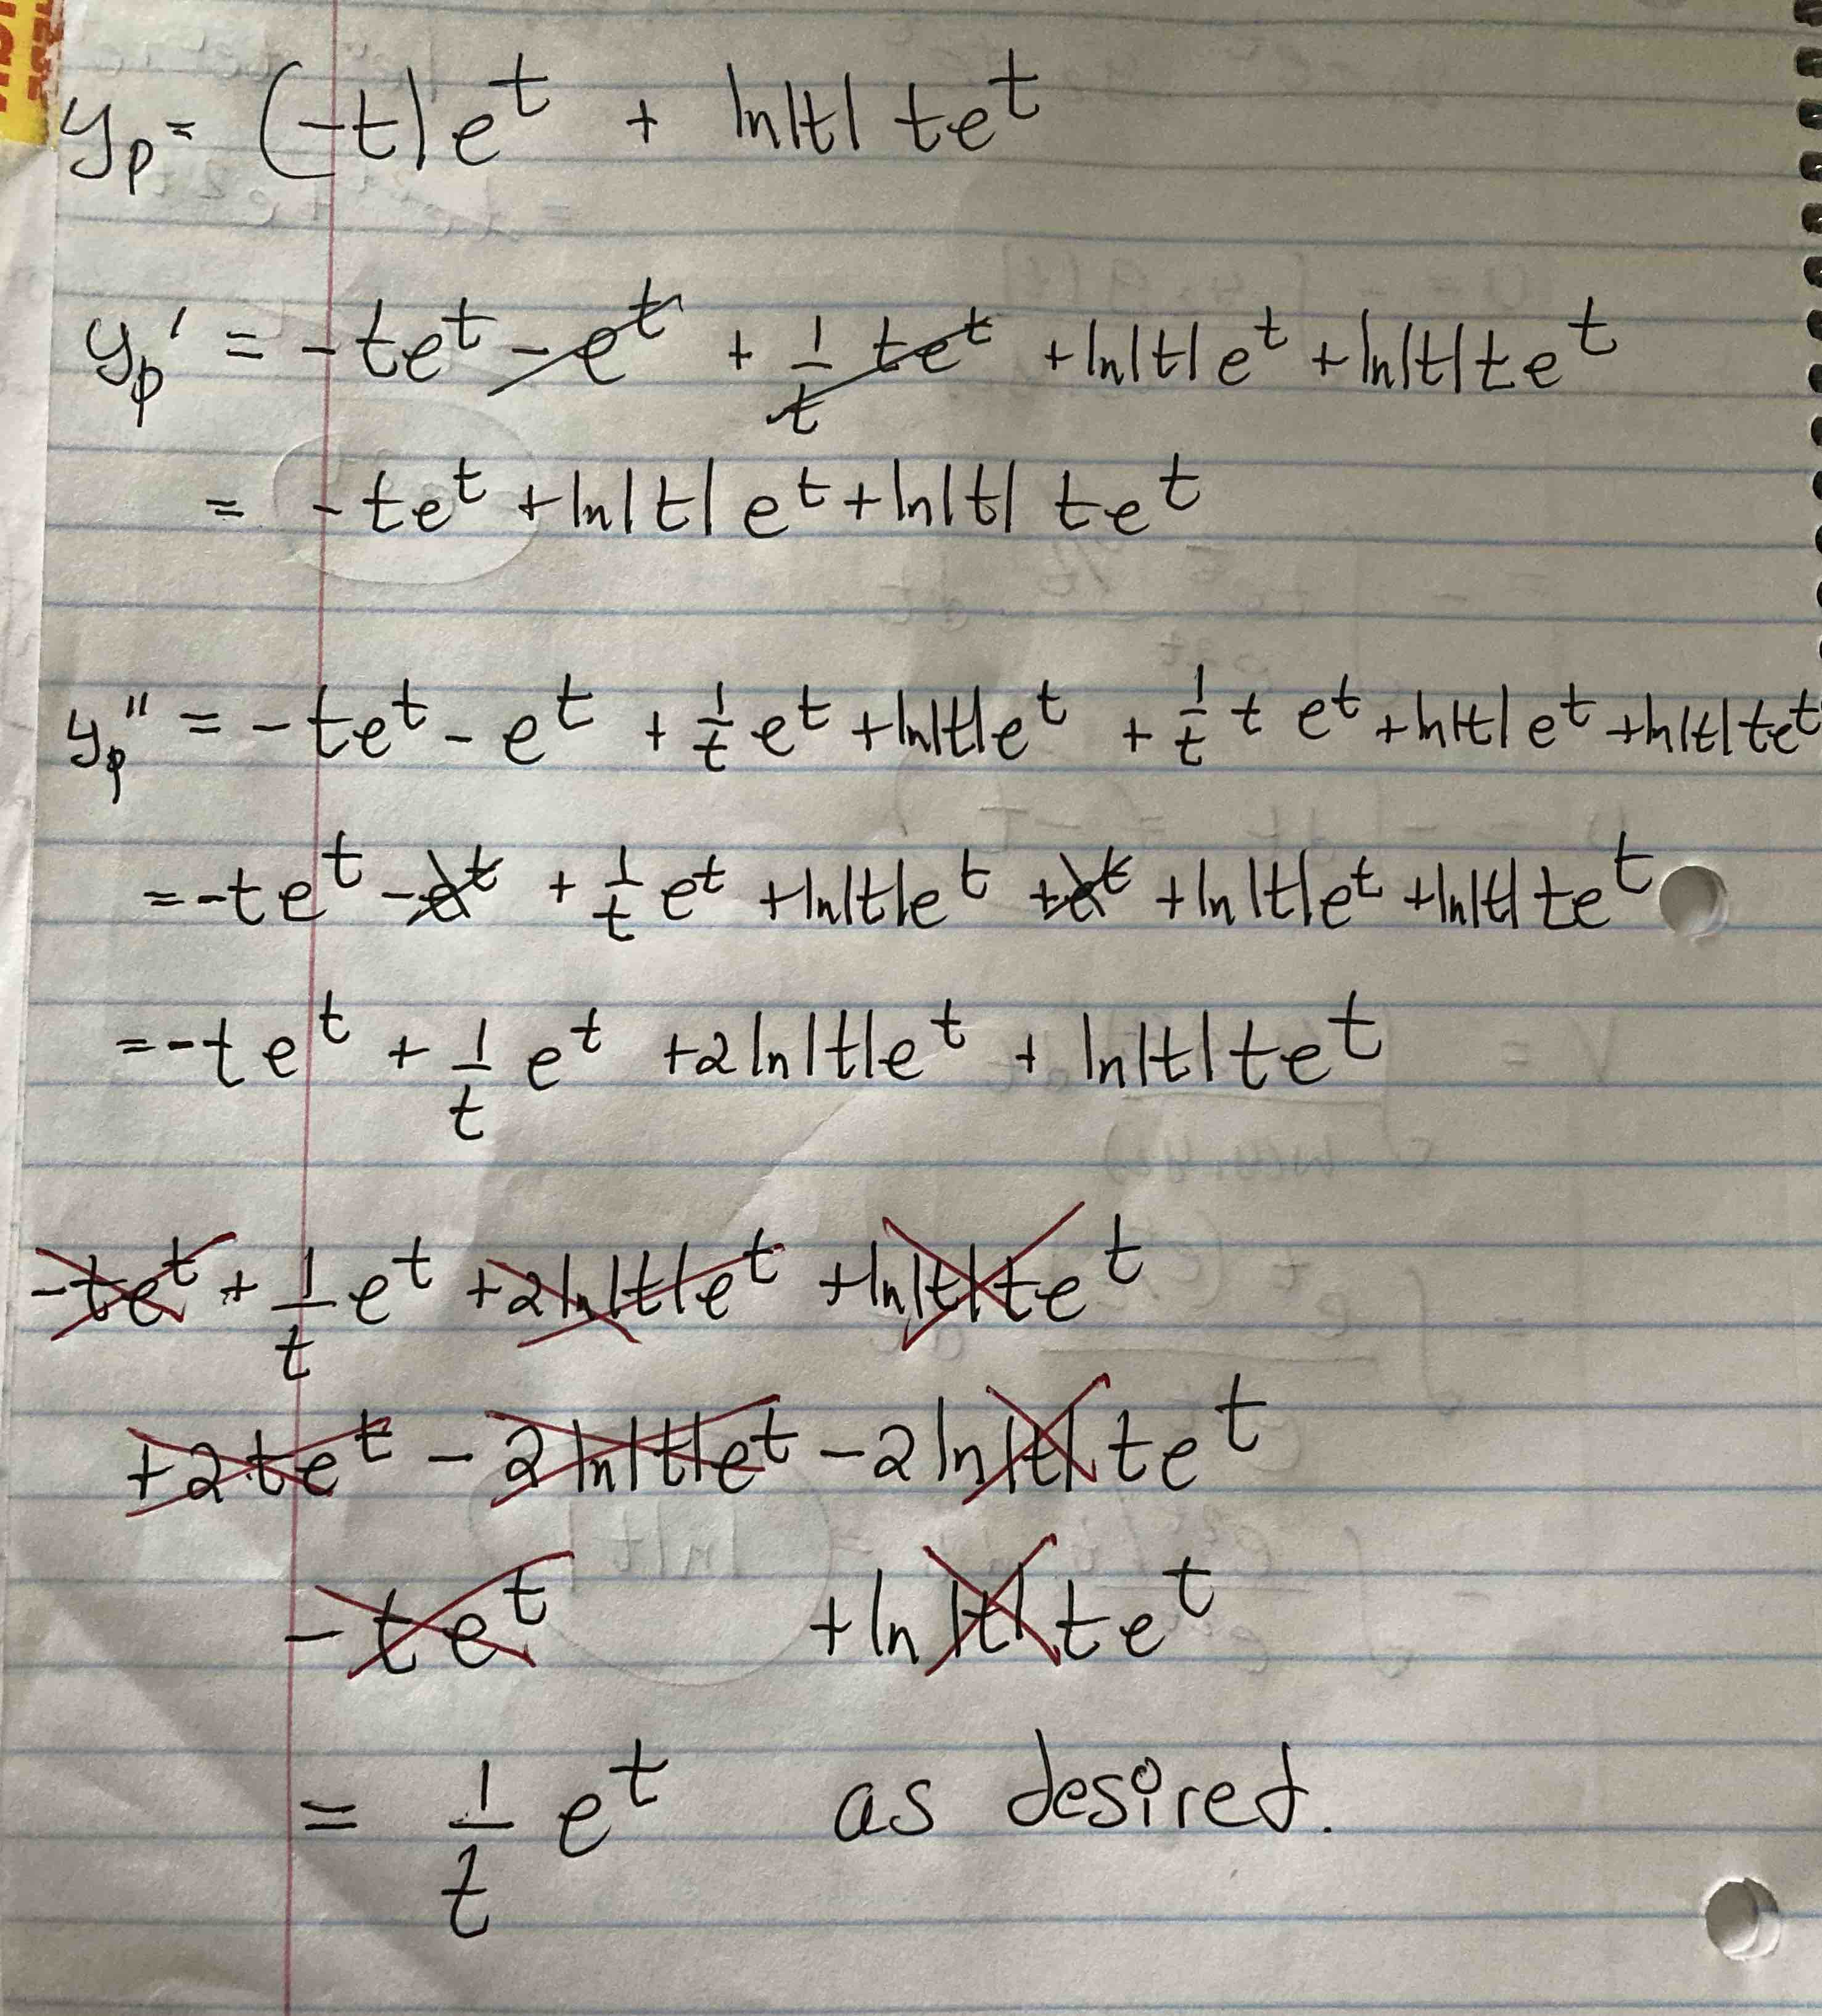 y_p = (-t)e^t + ln|t| te^t
y_p' = -te^t - e^t + 1/t te^t + ln|t|e^t + ln|t|te^t
= -te^t + ln|t| e^t + ln|t| te^t
y_p'' = -te^t - e^t + 1/t e^t + ln|t|e^t + 1/t t e^t + ln|t|e^t + ln|t|te^t
= -te^t - e^t + 1/t e^t + ln|t|e^t + e^t + ln|t|e^t + ln|t|te^t
= -te^t + 1/t e^t + 2ln|t|e^t + ln|t|te^t
-te^t + 1/t e^t + 2ln|t|e^t + ln|t|te^t
+2te^t - 2ln|t|e^t - 2ln|t|te^t
-te^t + ln|t|te^t
= 1/t e^t as desired.